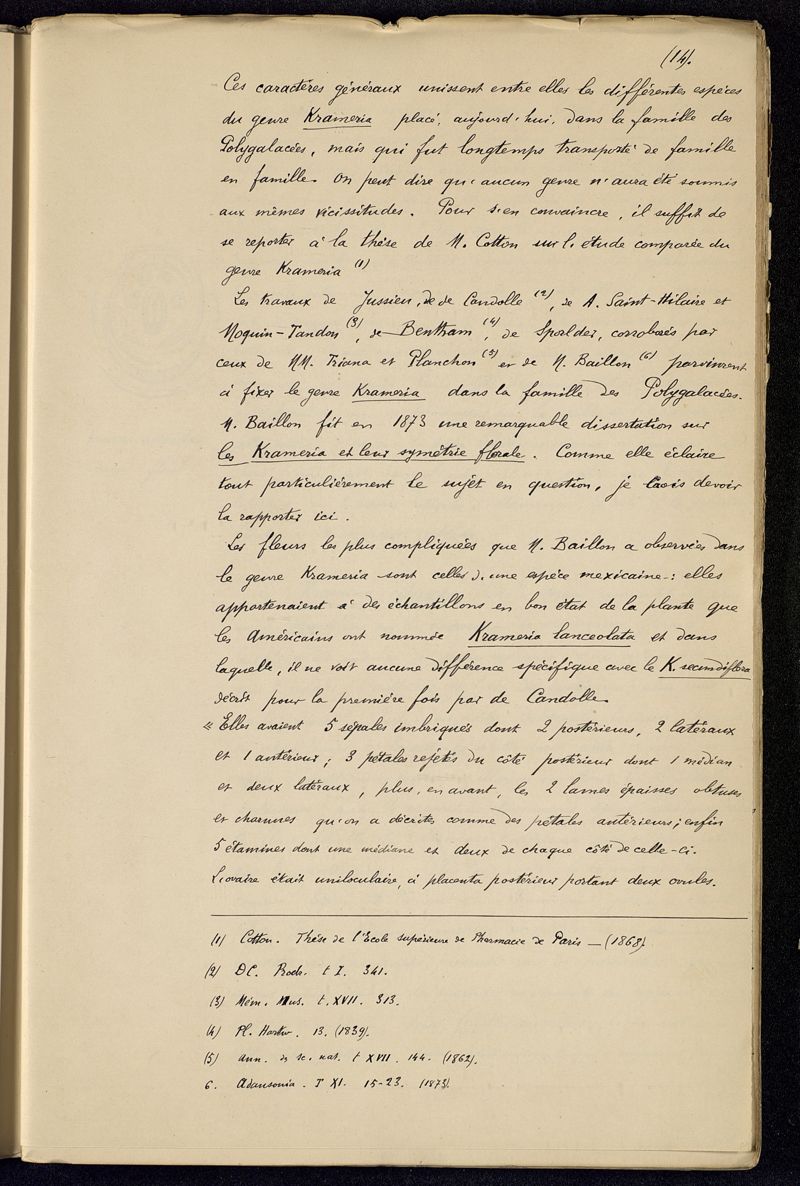 (14).
Ces caractères généraux unissent entre elles les différentes espèces
du genre Krameria placé, aujourd'hui, dans la famille des
Polygalacées, mais qui fut longtemps transporté de famille
en famille. On peut dire qu'aucun genre n'aura été soumis
aux mêmes vicissitudes. Pour s'en convaincre, il suffit de
se reporter à la thèse de M. Cotton sur l'étude comparée du
genre Krameria (1)
Les travaux de Jussieu, de de Candolle (2), de A. Saint-Hilaire et
Moquin-Tandon (3), de Bentham (4), de Sporlder, corroborés par
ceux de MM. Triana et Planchon (5) et de M. Baillon (6) parvinrent
à fixer le genre Krameria dans la famille des Polygalacées.
M. Baillon fit en 1873 une remarquable dissertation sur
les Krameria et leur symétrie florale. Comme elle éclaire
tout particulièrement le sujet en question, je crois devoir
la rapporter ici.
Les fleurs les plus compliquées que M. Baillon a observées dans
le genre Krameria sont celles d'une espèce mexicaine : elles
appartenaient à des échantillons en bon état de la plante que
les Américains ont nommée Krameria lanceolata et dans
laquelle, il ne voit aucune différence spécifique avec le K. secundiflora
décrit pour la première fois par de Candolle.
« Elles avaient 5 sépales imbriqués dont 2 postérieurs, 2 latéraux
et 1 antérieur ; 3 pétales rejetés du côté postérieur dont 1 médian
et deux latéraux, plus, en avant, les 2 lames épaisses obtuses
et charnues qu'on a décrites comme des pétales antérieurs ; enfin
5 étamines dont une médiane et deux de chaque côté de celle-ci.
L'ovaire était uniloculaire, à placenta postérieur portant deux ovules.
(1) Cotton. Thèse de l'Ecole supérieure de Pharmacie de Paris — (1868).
(2) DC. Prodr. t I. 341.
(3) Mém. Mus. t. XVII. 313.
(4) Pl. Hartw. 13. (1839).
(5) Ann. des sc. nat. t XVII. 144. (1862).
6. Adansonia. T XI. 15-23. (1873).